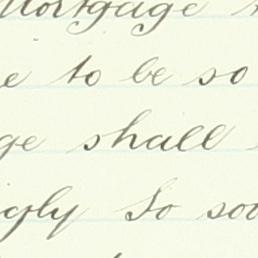 Mortgage
e to be so
ge shall
gly So soo